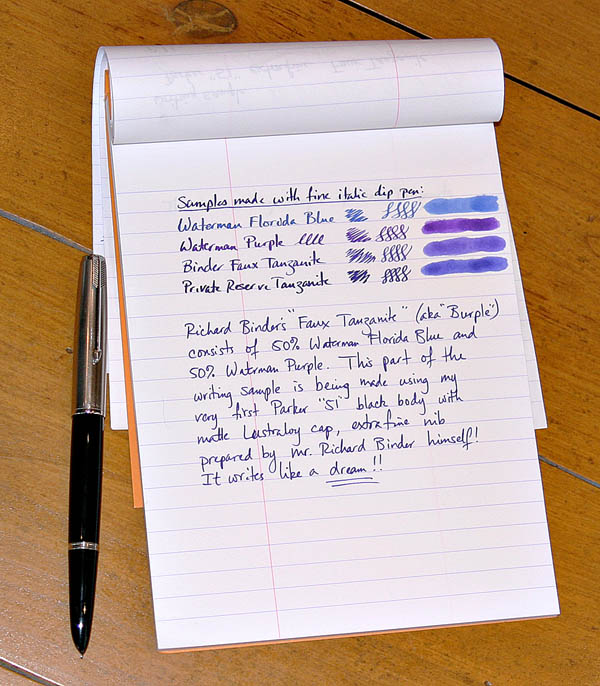 Samples made with fine italic dip pen:
Waterman Florida Blue
Waterman Purple
Binder Faux Tanzanite
Private Reserve Tanzanite
Richard Binder's "Faux Tanzanite" (aka "Burple")
consists of 50% Waterman Florida Blue and
50% Waterman Purple. This part of the
writing sample is being made using my
very first Parker "51" black body with
matte Lustraloy cap, extra fine nib
prepared by Mr. Richard Binder himself!
It writes like a dream!!